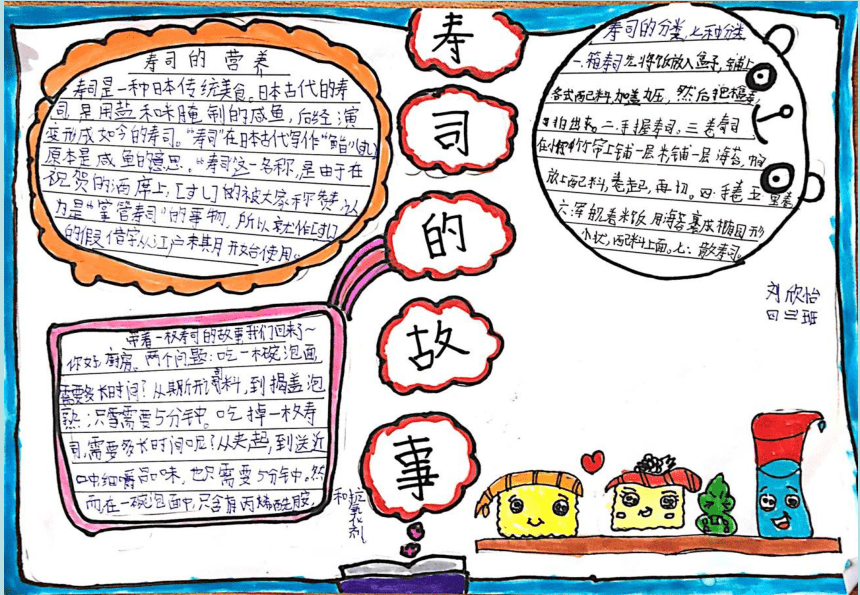 寿司的故事
寿司的营养
寿司是一种日本传统美食。日本古代的寿
司,是用盐和米腌制的咸鱼,后经演
变形成如今的寿司。"寿司"在日本古代写作"鮨"(すし)
原本是咸鱼的意思。"寿司"这一名称,是由于在
祝贺的酒席上,[すし]的被大家称赞,认
为是"掌管寿司"的事物,所以就作[すし]
的假借字从江户末期开始使用。
寿司的分类,七种分类
一.箱寿司先将饭放入盒子,铺上
各式配料,加盖力压,然后把
扣出来。二.手握寿司。三卷寿司
在小竹帘上铺一层米铺一层海苔,
放上配料,卷起,再切。四.手卷五
六:军舰卷米饭用海苔裹成椭圆形
小状,配料上面。七:散寿司。
刘欣怡
四三班
带着一枚寿司的故事我们回来了~
你好厨房。两个问题:吃一碗泡面
需要多长时间?从撕开料,到揭盖泡
熟;只需需要5分钟。吃掉一枚寿
司,需要多长时间呢?从夹起,到送近
口中细嚼品味,也只需要5分钟。然
而在一碗泡面中,只含有丙烯酰胺
和抗氧化剂